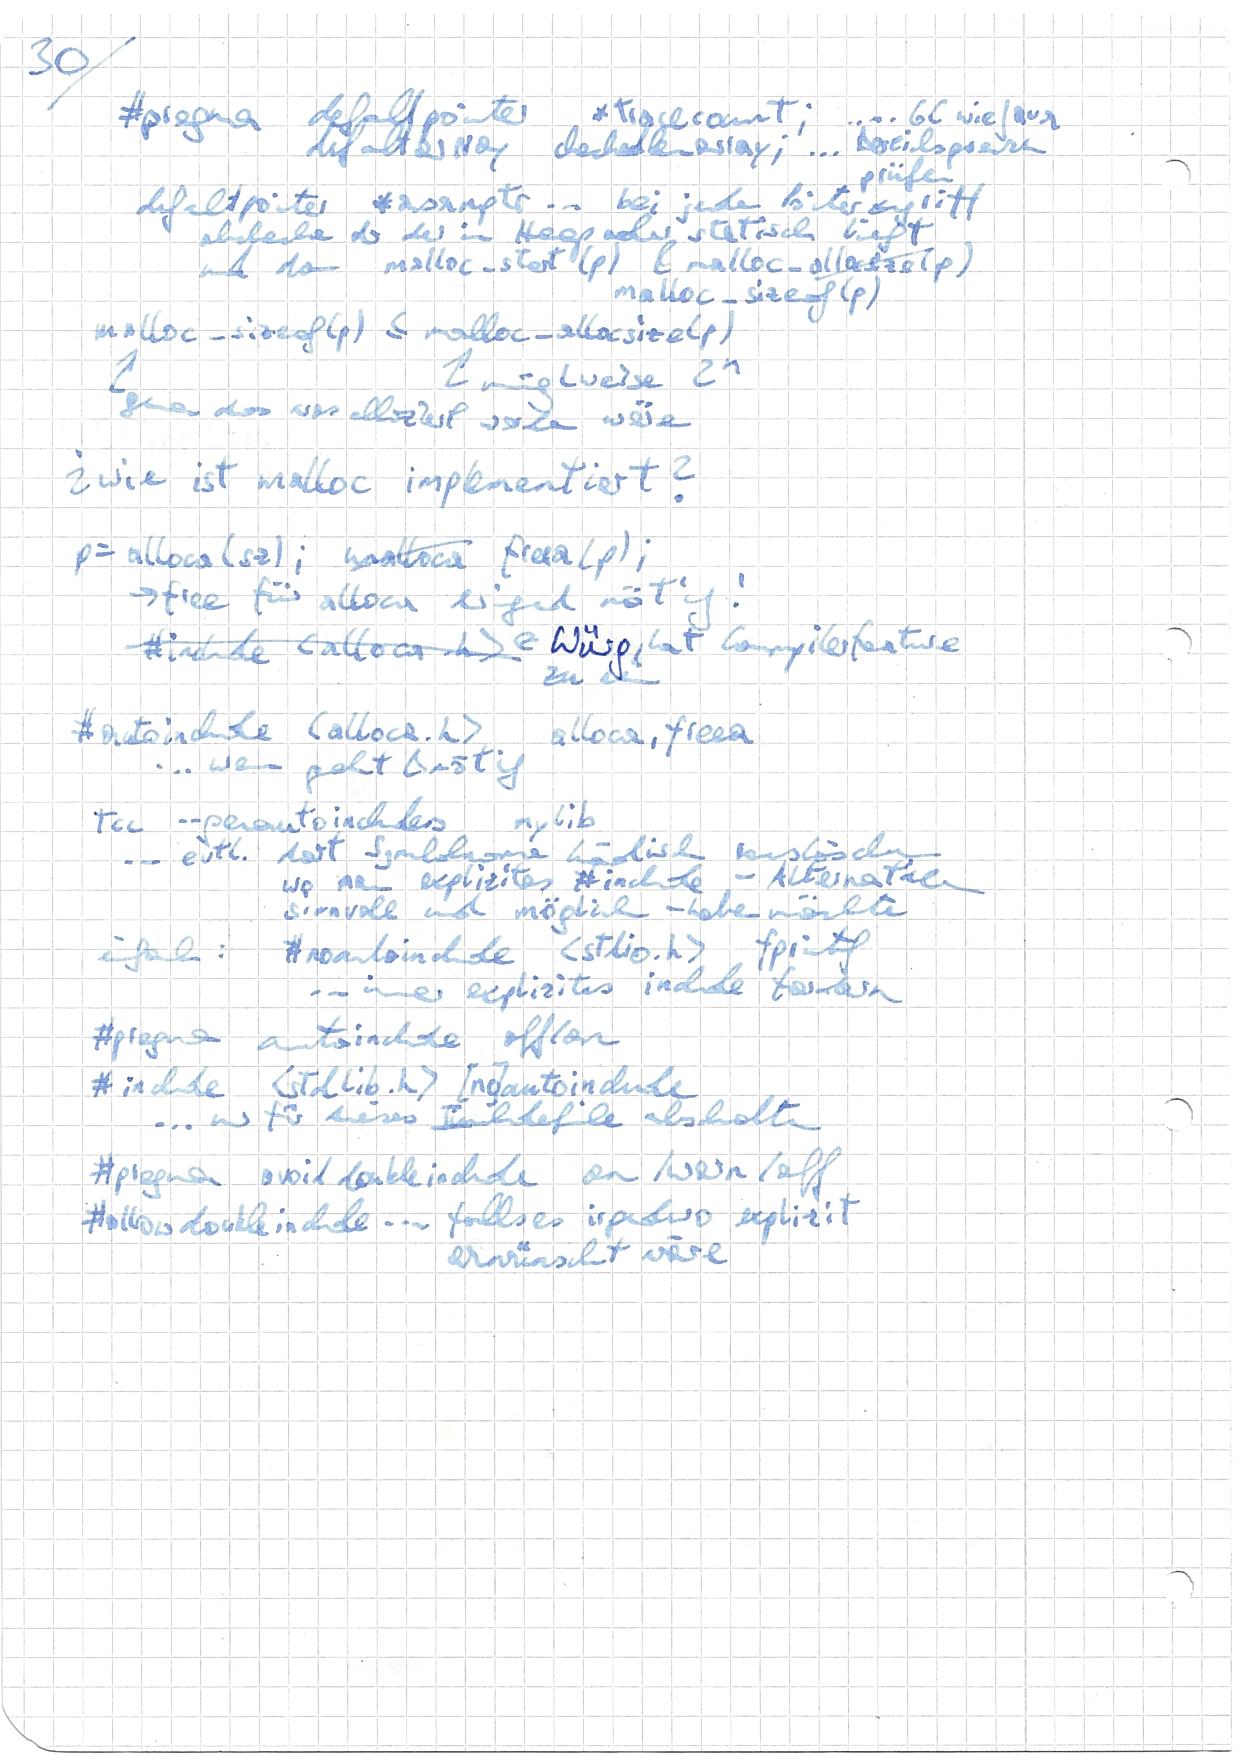 30/
#pragma defaultpointer *tracecount; .... GC wie Java
defaultarray checkedlenarray; ... Bereichsgrenzen
prüfen
defaultpointer -- bei jedem Pointerzugriff
abchecken ob der im Heap oder statisch liegt
und dann malloc_start(p) & malloc_allocsize(p)
malloc_sizeof(p)
malloc_sizeof(p) ≤ malloc_allocsize(p)
↑ ↑ möglweise 2^n
genau das was alloziert worden wäre
¿wie ist malloc implementiert?
p = alloca(sz); freea(p);
→ free für alloca dringend nötig!
#include <alloca.h> ← Würg, hat Compilerfeature
zu sein
#autoinclude <alloca.h> alloca, freea
... wenn geht & nötig
tcc --genautoincludes mylib
-- evtl. dort Symbolnamen händisch rauslöschen
wo man explizites #include - Alternativen
sinnvoll und möglich - haben möchte
einfach: #noautoinclude <stdio.h> fprintf
-- immer explizites include fordern
#pragma autoinclude off/on
#include <stdlib.h> [no]autoinclude
... nur für dieses Includefile abschalten
#pragma avoiddoubleinclude on/warn/off
#allowdoubleinclude --- falls es irgendwo explizit
erwünscht wäre